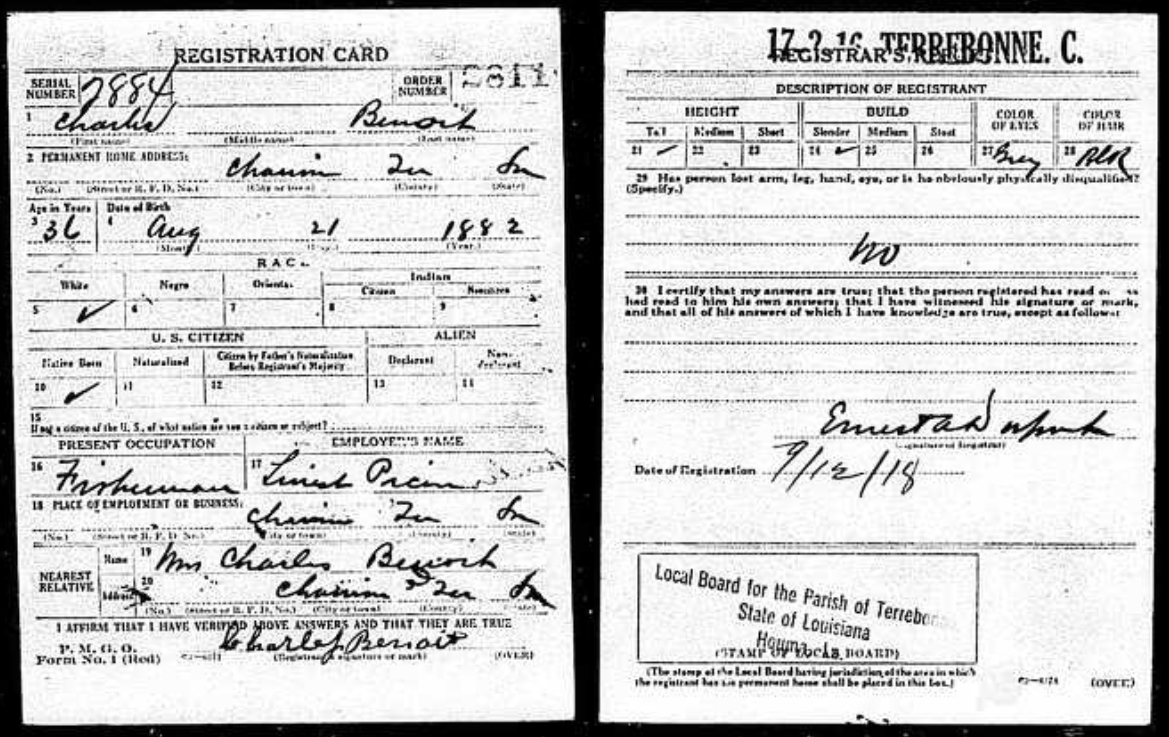 REGISTRATION CARD
SERIAL NUMBER 2884 ORDER NUMBER 2811
1 Charles Benoit
(First name) (Middle name) (Last name)
2 PERMANENT HOME ADDRESS:
Chauvin Ter La
(No.) (Street or R. F. D. No.) (City or town) (County) (State)
Age in Years Date of Birth
3 36 4 Aug 21 1882
(Month) (Day.) (Year.)
RACE
White Negro Oriental Indian
Citizen Noncitizen
5 ✓ 6 7 8 9
U. S. CITIZEN ALIEN
Native Born Naturalized Citizen by Father's Naturalization Before Registrant's Majority Declarant Non-declarant
10 ✓ 11 12 13 14
15
If not a citizen of the U. S., of what nation are you a citizen or subject?
PRESENT OCCUPATION EMPLOYER'S NAME
16 Fisherman 17
18 PLACE OF EMPLOYMENT OR BUSINESS:
Chauvin Ter La
(No.) (Street or R. F. D. No.) (City or town) (County) (State)
NEAREST RELATIVE Name 19 Mrs Charles Benoit
Address 20 Chauvin Ter La
(No.) (Street or R. F. D. No.) (City or town) (County) (State)
I AFFIRM THAT I HAVE VERIFIED ABOVE ANSWERS AND THAT THEY ARE TRUE
P. M. G. O.
Form No. 1 (Red) Charles Benoit
(Registrant's signature or mark) (OVER)
17-2-16 TERREBONNE. C.
REGISTRAR'S REPORT
DESCRIPTION OF REGISTRANT
HEIGHT BUILD COLOR OF EYES COLOR OF HAIR
Tall Medium Short Slender Medium Stout
21 ✓ 22 23 24 ✓ 25 26 27 Grey 28 Blk
29 Has person lost arm, leg, hand, eye, or is he obviously physically disqualified?
(Specify.)
No
30 I certify that my answers are true; that the person registered has read or has
had read to him his own answers; that I have witnessed his signature or mark,
and that all of his answers of which I have knowledge are true, except as follows:
Ernest A
(Signature of Registrar)
Date of Registration 9/12/18
Local Board for the Parish of Terrebonne
State of Louisiana
Houma, La.
(STAMP OF LOCAL BOARD)
(The stamp of the Local Board having jurisdiction of the area in which
the registrant has his permanent home shall be placed in this box.)
(OVER)